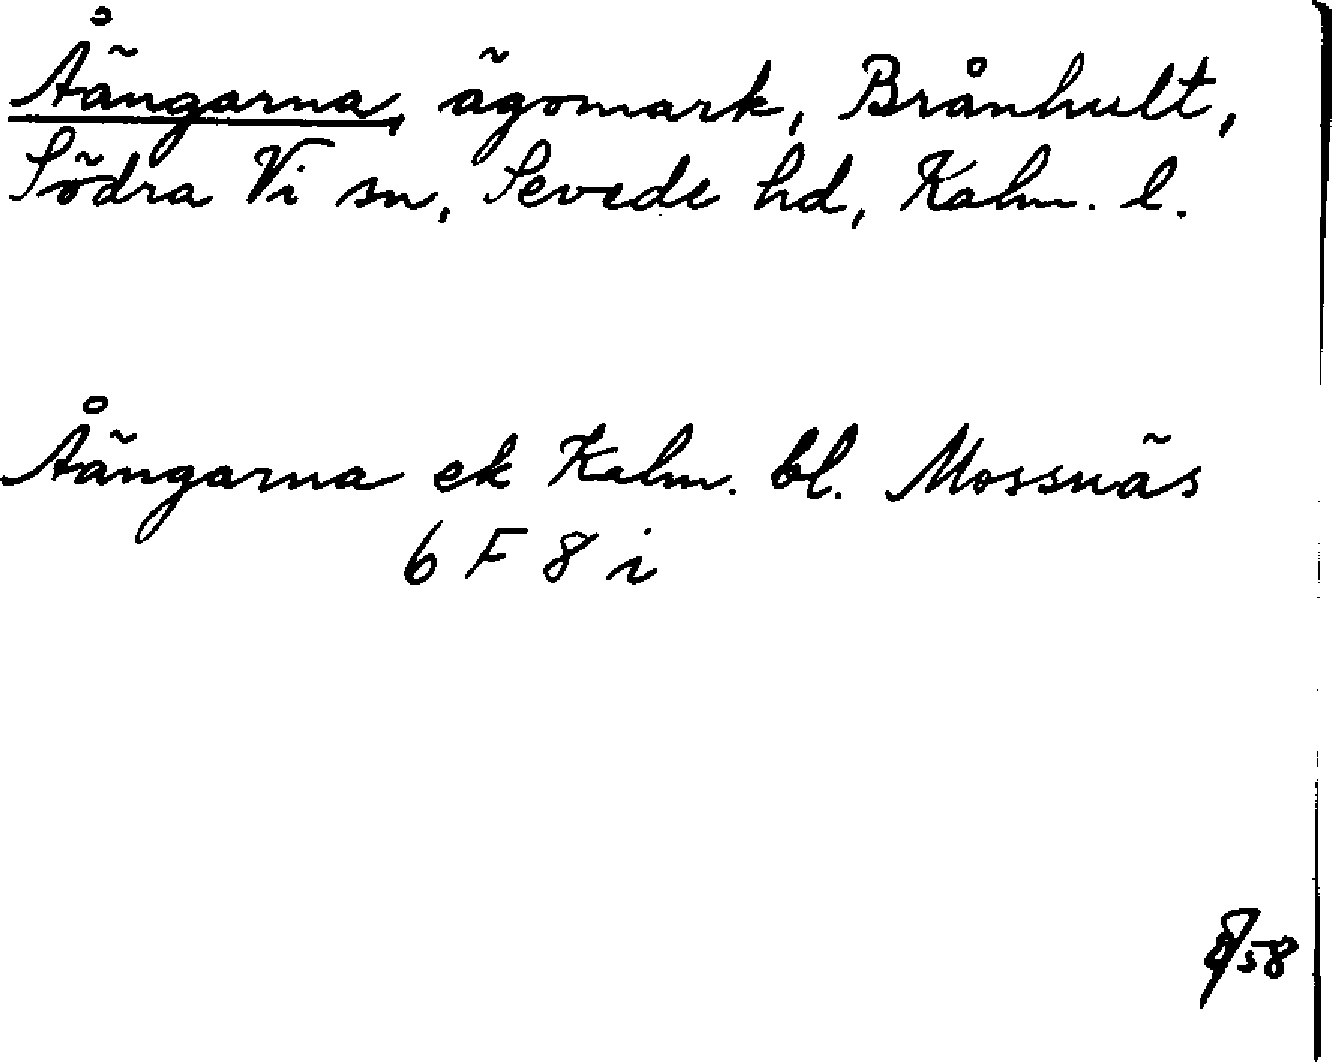 Åängarna, ägomark, Brånhult,
Södra Vi sn, Sevede hd, Kalm. l.
Åängarna ek Kalm. bl. Mossnäs
6 F 8 i
58